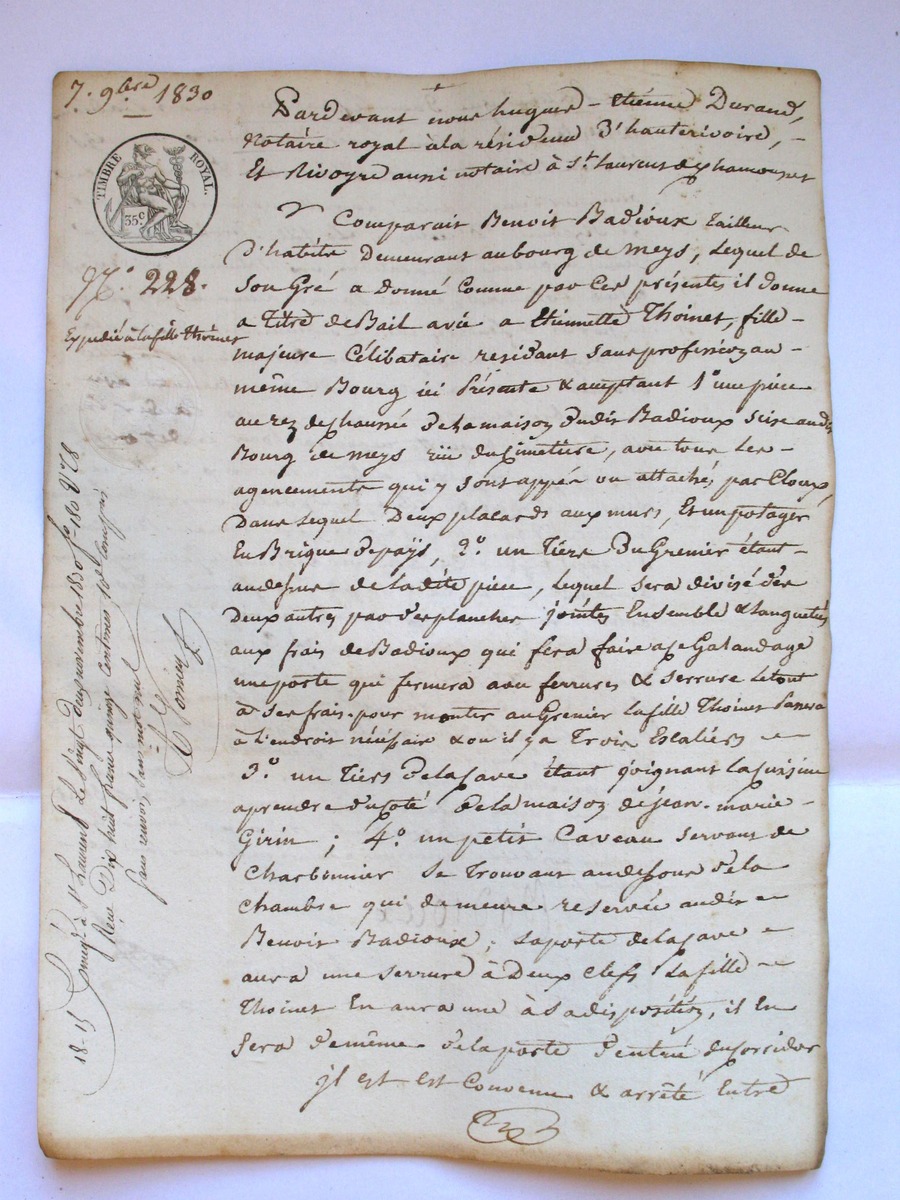 7. 9bre 1830
TIMBRE ROYAL.
35c
No. 228.
Expedié à la fille Thoinet
Pardevant nous hugues-Etienne Durand,
Notaire royal à la résidence D'hauterivoire,
Et Rivoyre aussi notaire à St. Laurent de chamousset
Comparait Benoit Badioux tailleur
D'habits Demeurant au bourg de Meys, Lequel de
Son Gré a Donné Comme par Ces présentes il donne
a Titre de Bail avie a Etiennette Thoinet, fille
majeure Célibataire residant sans profession au
même Bourg ici Présente & acceptant 1o une pièce
au rez de chaussée de la maison dudit Badioux sise audit
Bourg de meys rue du Cimetiere, avec tous les
agencements qui y sont appés ou attachés par Cloux,
Dans Lequel Deux placards aux murs, Et un potager
En Brique de païs, 2o. un Tiers Du Grenier étant
audessus de la dite piece, lequel sera divisé des
Deux autres par des planches jointes Ensemble & languetés
aux frais de Badioux qui fera faire a ce Galandage
une porte qui fermera avec ferrures & serrure le tout
à ses frais. pour monter au Grenier la fille Thoinet Passera
à l'endroit nécessaire & ou il y a Trois Escaliers
3o. un Tiers de la Cave étant joignant la Cuisine
aprendre du côté de la maison de jean-marie
Girin; 4o. un petit Caveau servant de
Charbonnier se Trouvant audessous de la
Chambre qui demeure reservée audit
Benoit Badioux; la porte de la Cave
aura une serrure à Deux Clefs la fille
Thoinet En aura une à sa disposition, il En
sera de même de la porte d'entrée du Corridor
jl est est Convenu & arrêté Entre
18-15 Enregé à St Laurent le vingt deux novembre 1830 fo. 180 Vo C 8
Reçu Dix huit francs quinze Centimes, 10e Compris
sans renvoi ni mot nul